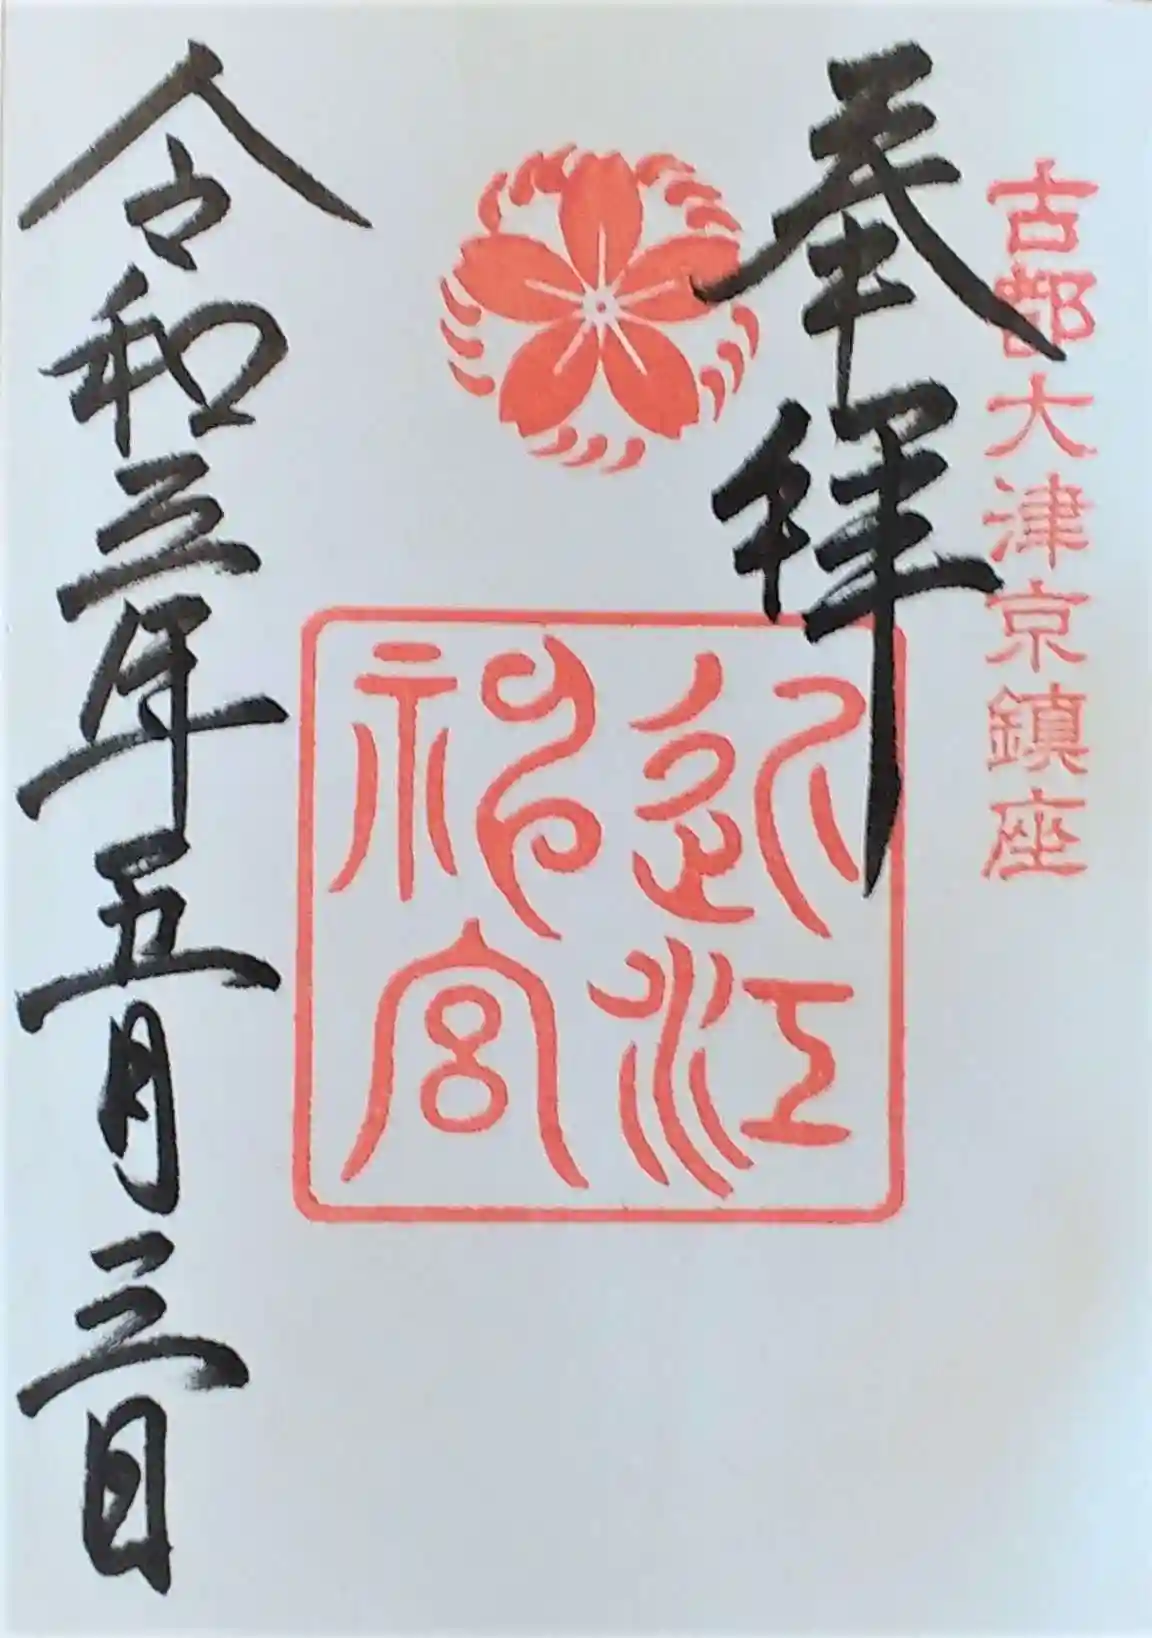 古都大津京鎮座
奉拝
近江
神宮
令和三年五月三日